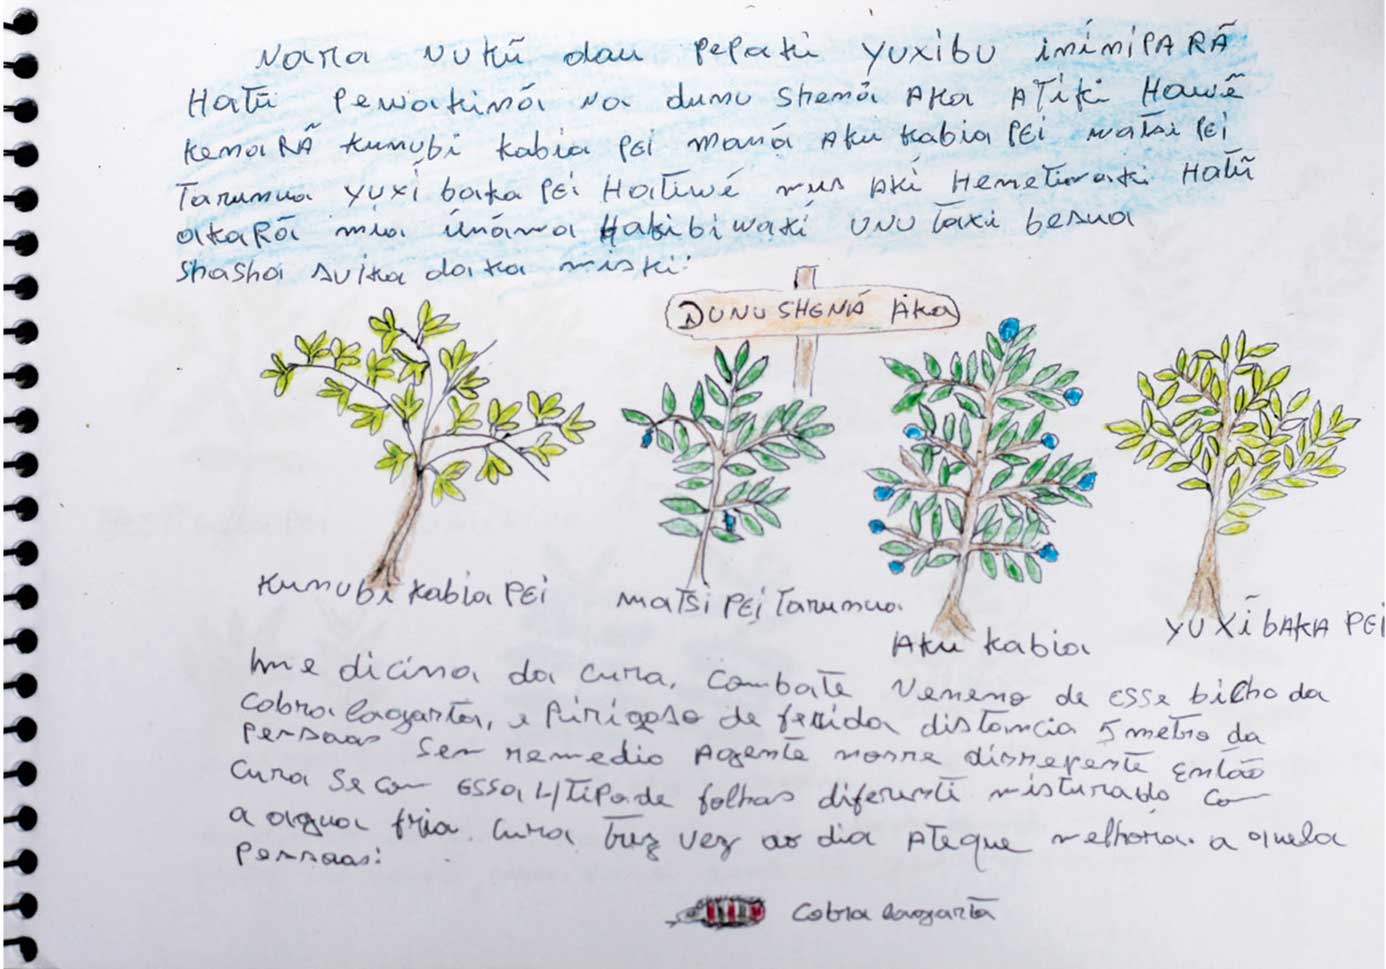 Nara nukũ dau pepaki yuxibu inínipa rã
Hatũ pewakiná na dunu shená aka atiki Hawẽ
kena rã kunubi kabia pei maná aku kabia pei matsi pei
Tarunua yuxĩ baka pei Hatiwé nus aki Henetiwaki Hatũ
akarã mia únáma Hakibiwakí unu taxi besua
shasha suika daka miski:
DUNU SHENÁ Aka
kunubi kabia pei
matsi pei Tarunua.
Aku kabia
YUXĨ BAKA PEI
me dicina da cura. combate veneno de esse bicho da
cobra lagarta, e pirigoso de ferida distancia 5 metro da
persoas sen remedio agente morre dirrepente então
cura se com essa 4 tipo de folhas diferenti misturado com
a agua fria. cura trez vez ao dia ateque melhora. a quela
persoas:
cobra lagarta